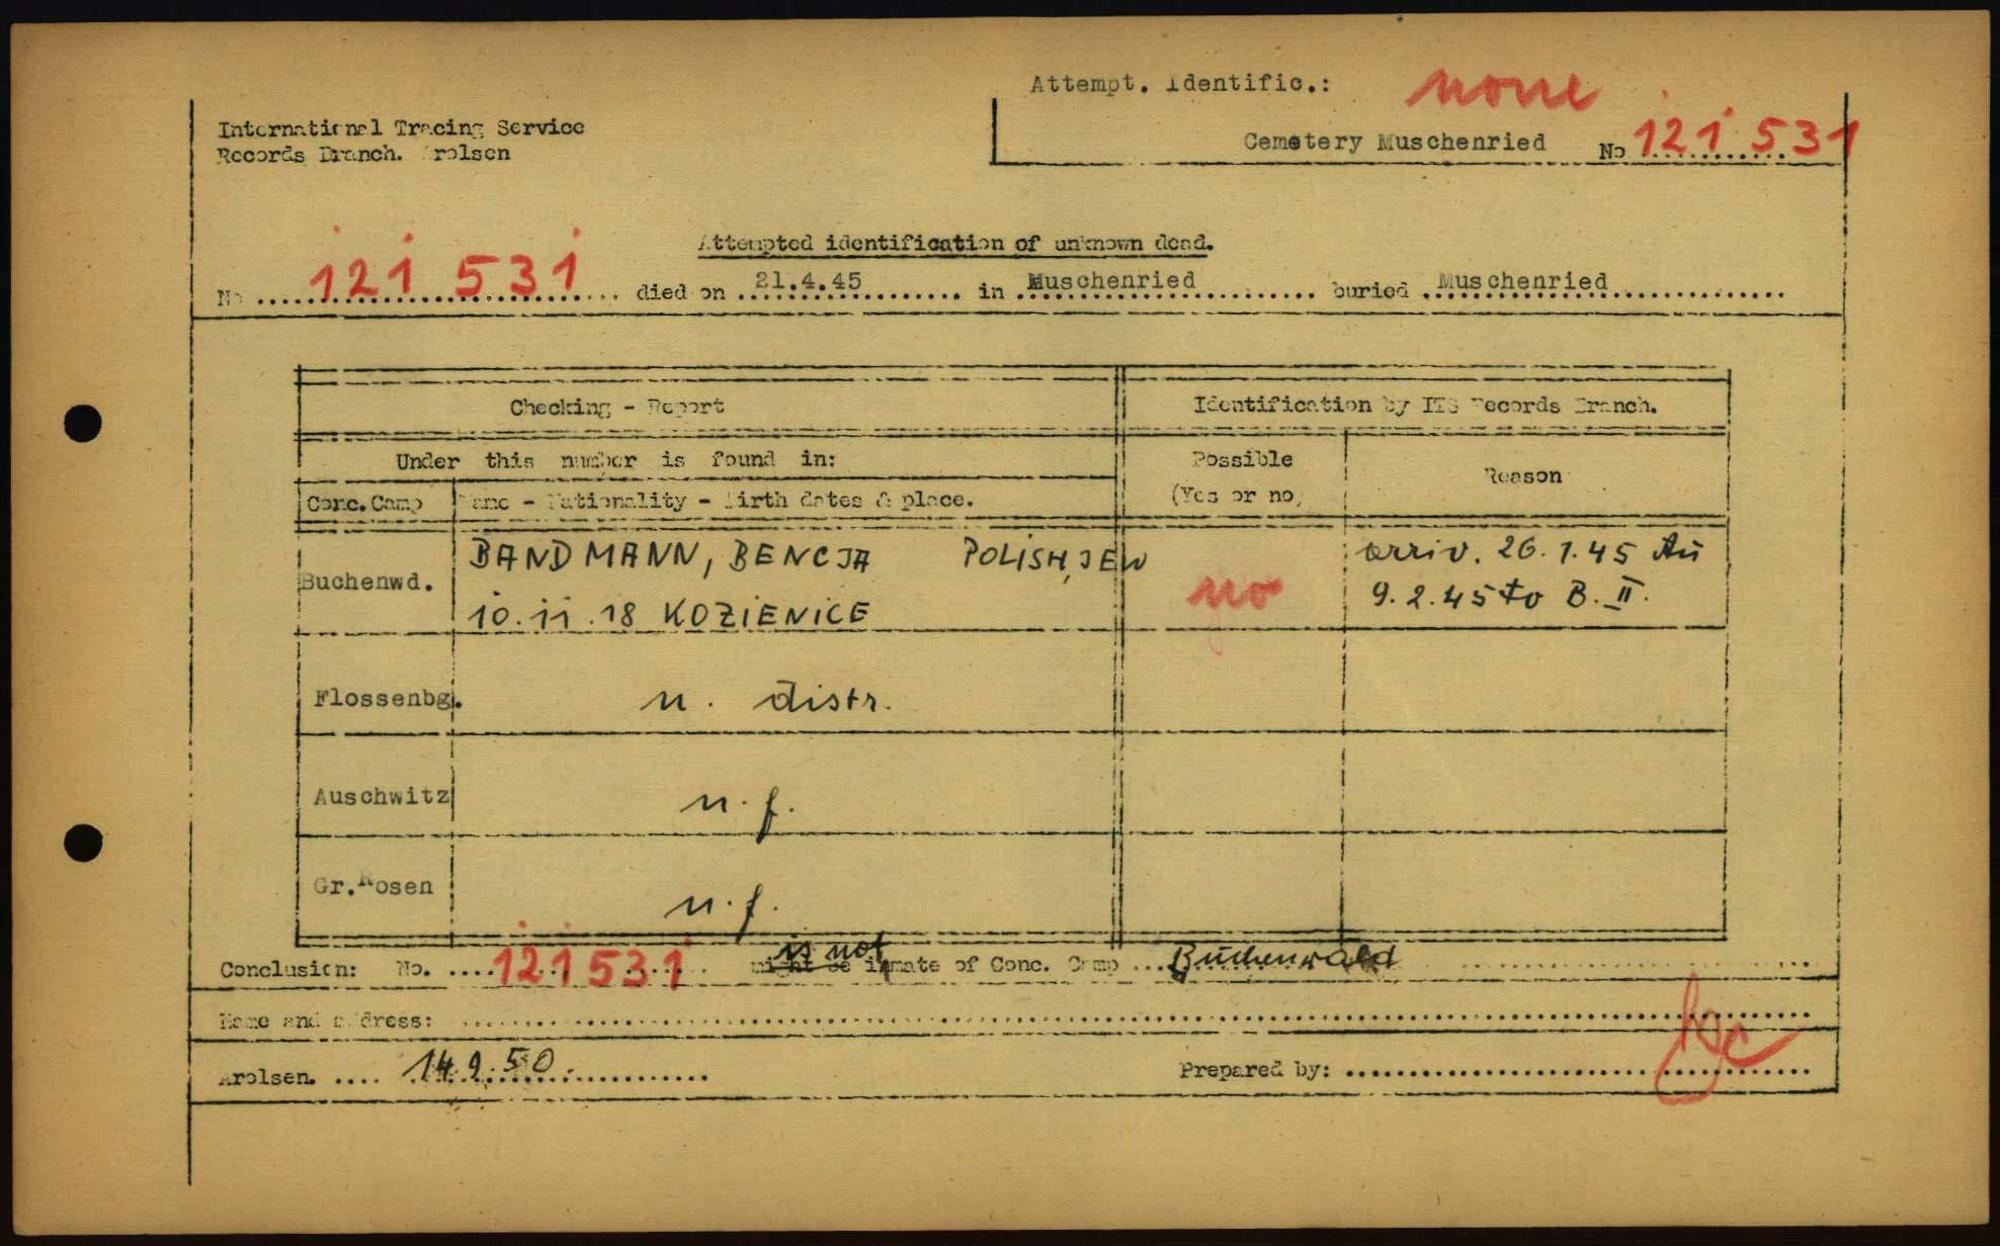 Attempt. Identific.: none
International Tracing Service
Records Branch. Arolsen
Cemetery Muschenried No 121 531
Attempted identification of unknown dead.
No 121 531 died on 21.4.45 in Muschenried buried Muschenried
Checking - Report
Identification by ITS Records Branch.
Under this number is found in:
Possible
(Yes or no)
Reason
Conc. Camp
Name - Nationality - Birth dates & place.
Buchenwd.
BANDMANN, BENCJA POLISH, JEW
10.11.18 KOZIENICE
no
arriv. 26.1.45 Au
9.2.45 to B. II.
Flossenbg.
n. distr.
Auschwitz
n.f.
Gr.Rosen
n.f.
is not
Conclusion: No. .... 121531 might be inmate of Conc. Camp ... Buchenwald
Name and address:
Arolsen. .... 14.9.50.
Prepared by: